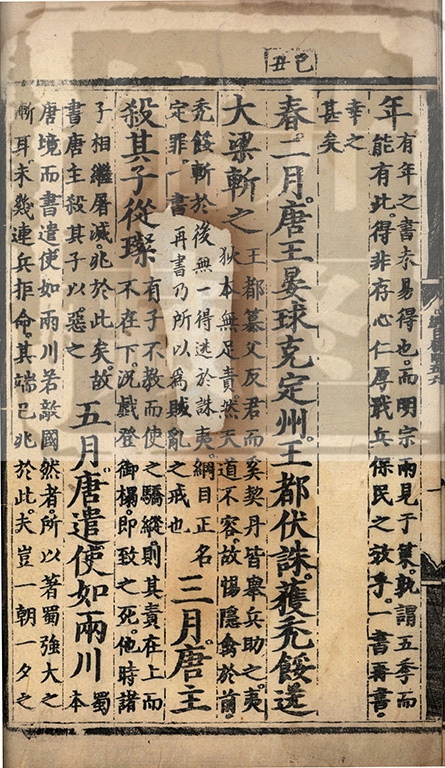 己丑
年有年之書未易得也。而明宗兩見于策。孰謂五季而
能有此。得非存心仁厚戢兵保民之效乎。一書再書。
幸之
甚矣
春。二月。唐王晏球克定州。王都伏誅。獲禿餒送
大梁斬之王都慕父反君。而奚契丹皆舉兵助之。夷
狄本無足責。然天道不容。故惕隱禽於前。
禿餒斬於後。無一得迯於誅夷。綱目正名
定罪。一書再書。乃所以為賊亂之戒也
三月。唐主
殺其子從璨有子不教而使之驕縱。則其責在上而
不在下。況戲登御榻。即致之死。他時諸
子相繼屠滅。兆於此矣。故
書唐主殺其子以惡之
五月。唐遣使如兩川蜀
本
唐境而書遣使如兩川。若敵國然者。所以著蜀強大之
漸耳。未幾連兵拒命。其端已兆於此。夫豈一朝一夕之